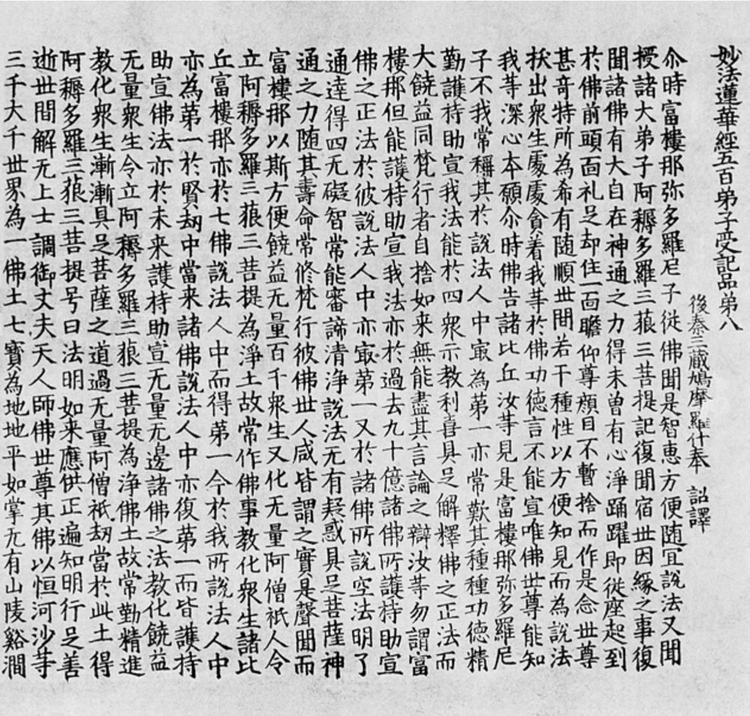 妙法蓮華經五百弟子受記品第八
後秦三藏鳩摩羅什奉 詔譯
尒時富樓那弥多羅尼子從佛聞是智惠方便隨宜說法又聞
授諸大弟子阿耨多羅三藐三菩提記復聞宿世因緣之事復
聞諸佛有大自在神通之力得未曾有心淨踊躍即從座起到
於佛前頭面礼足却住一面瞻仰尊顔目不暫捨而作是念世尊
甚奇特所為希有随順世間若干種性以方便知見而為說法
拔出衆生處處貪着我䓁於佛功德言不能宣唯佛世尊能知
我䓁深心本願尒時佛告諸比丘汝䓁見是富樓那弥多羅尼
子不我常稱其於說法人中㝡為第一亦常歎其種種功德精
勤護持助宣我法能於四衆示教利喜具足解釋佛之正法而
大饒益同梵行者自捨如来無能盡其言論之辯汝䓁勿謂富
樓那但能護持助宣我法亦於過去九十億諸佛所護持助宣
佛之正法於彼說法人中亦㝡第一又於諸佛所說空法明了
通達得四无礙智常能審諦清淨說法无有疑惑具足菩薩神
通之力随其壽命常修梵行彼佛世人咸皆謂之實是聲聞而
富樓那以斯方便饒益无量百千衆生又化无量阿僧祇人令
立阿耨多羅三藐三菩提為淨土故常作佛事教化衆生諸比
丘富樓那亦於七佛說法人中而得第一今於我所說法人中
亦為第一於賢劫中當来諸佛說法人中亦復第一而皆護持
助宣佛法亦於未来護持助宣无量无邊諸佛之法教化饒益
无量衆生令立阿耨多羅三藐三菩提為淨佛土故常勤精進
教化衆生漸漸具足菩薩之道過无量阿僧祇劫當於此土得
阿耨多羅三藐三菩提号曰法明如来應供正遍知明行足善
逝世間解无上士調御丈夫天人師佛世尊其佛以恒河沙䓁
三千大千世界為一佛土七寶為地地平如掌无有山陵谿澗